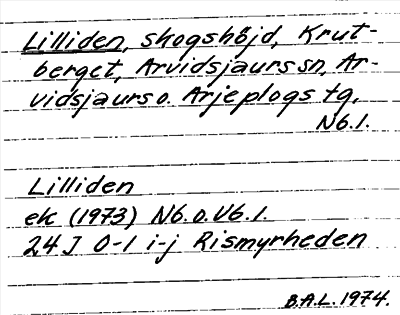 Lilliden, skogshöjd, Krut-
berget, Arvidsjaurs sn, Ar-
vidsjaurs o. Arjeplogs tg,
Nb.l.
Lilliden
ek (1973) Nb.o.Vb.l.
24J 0-1 i-j Rismyrheden
B.A.L. 1974.